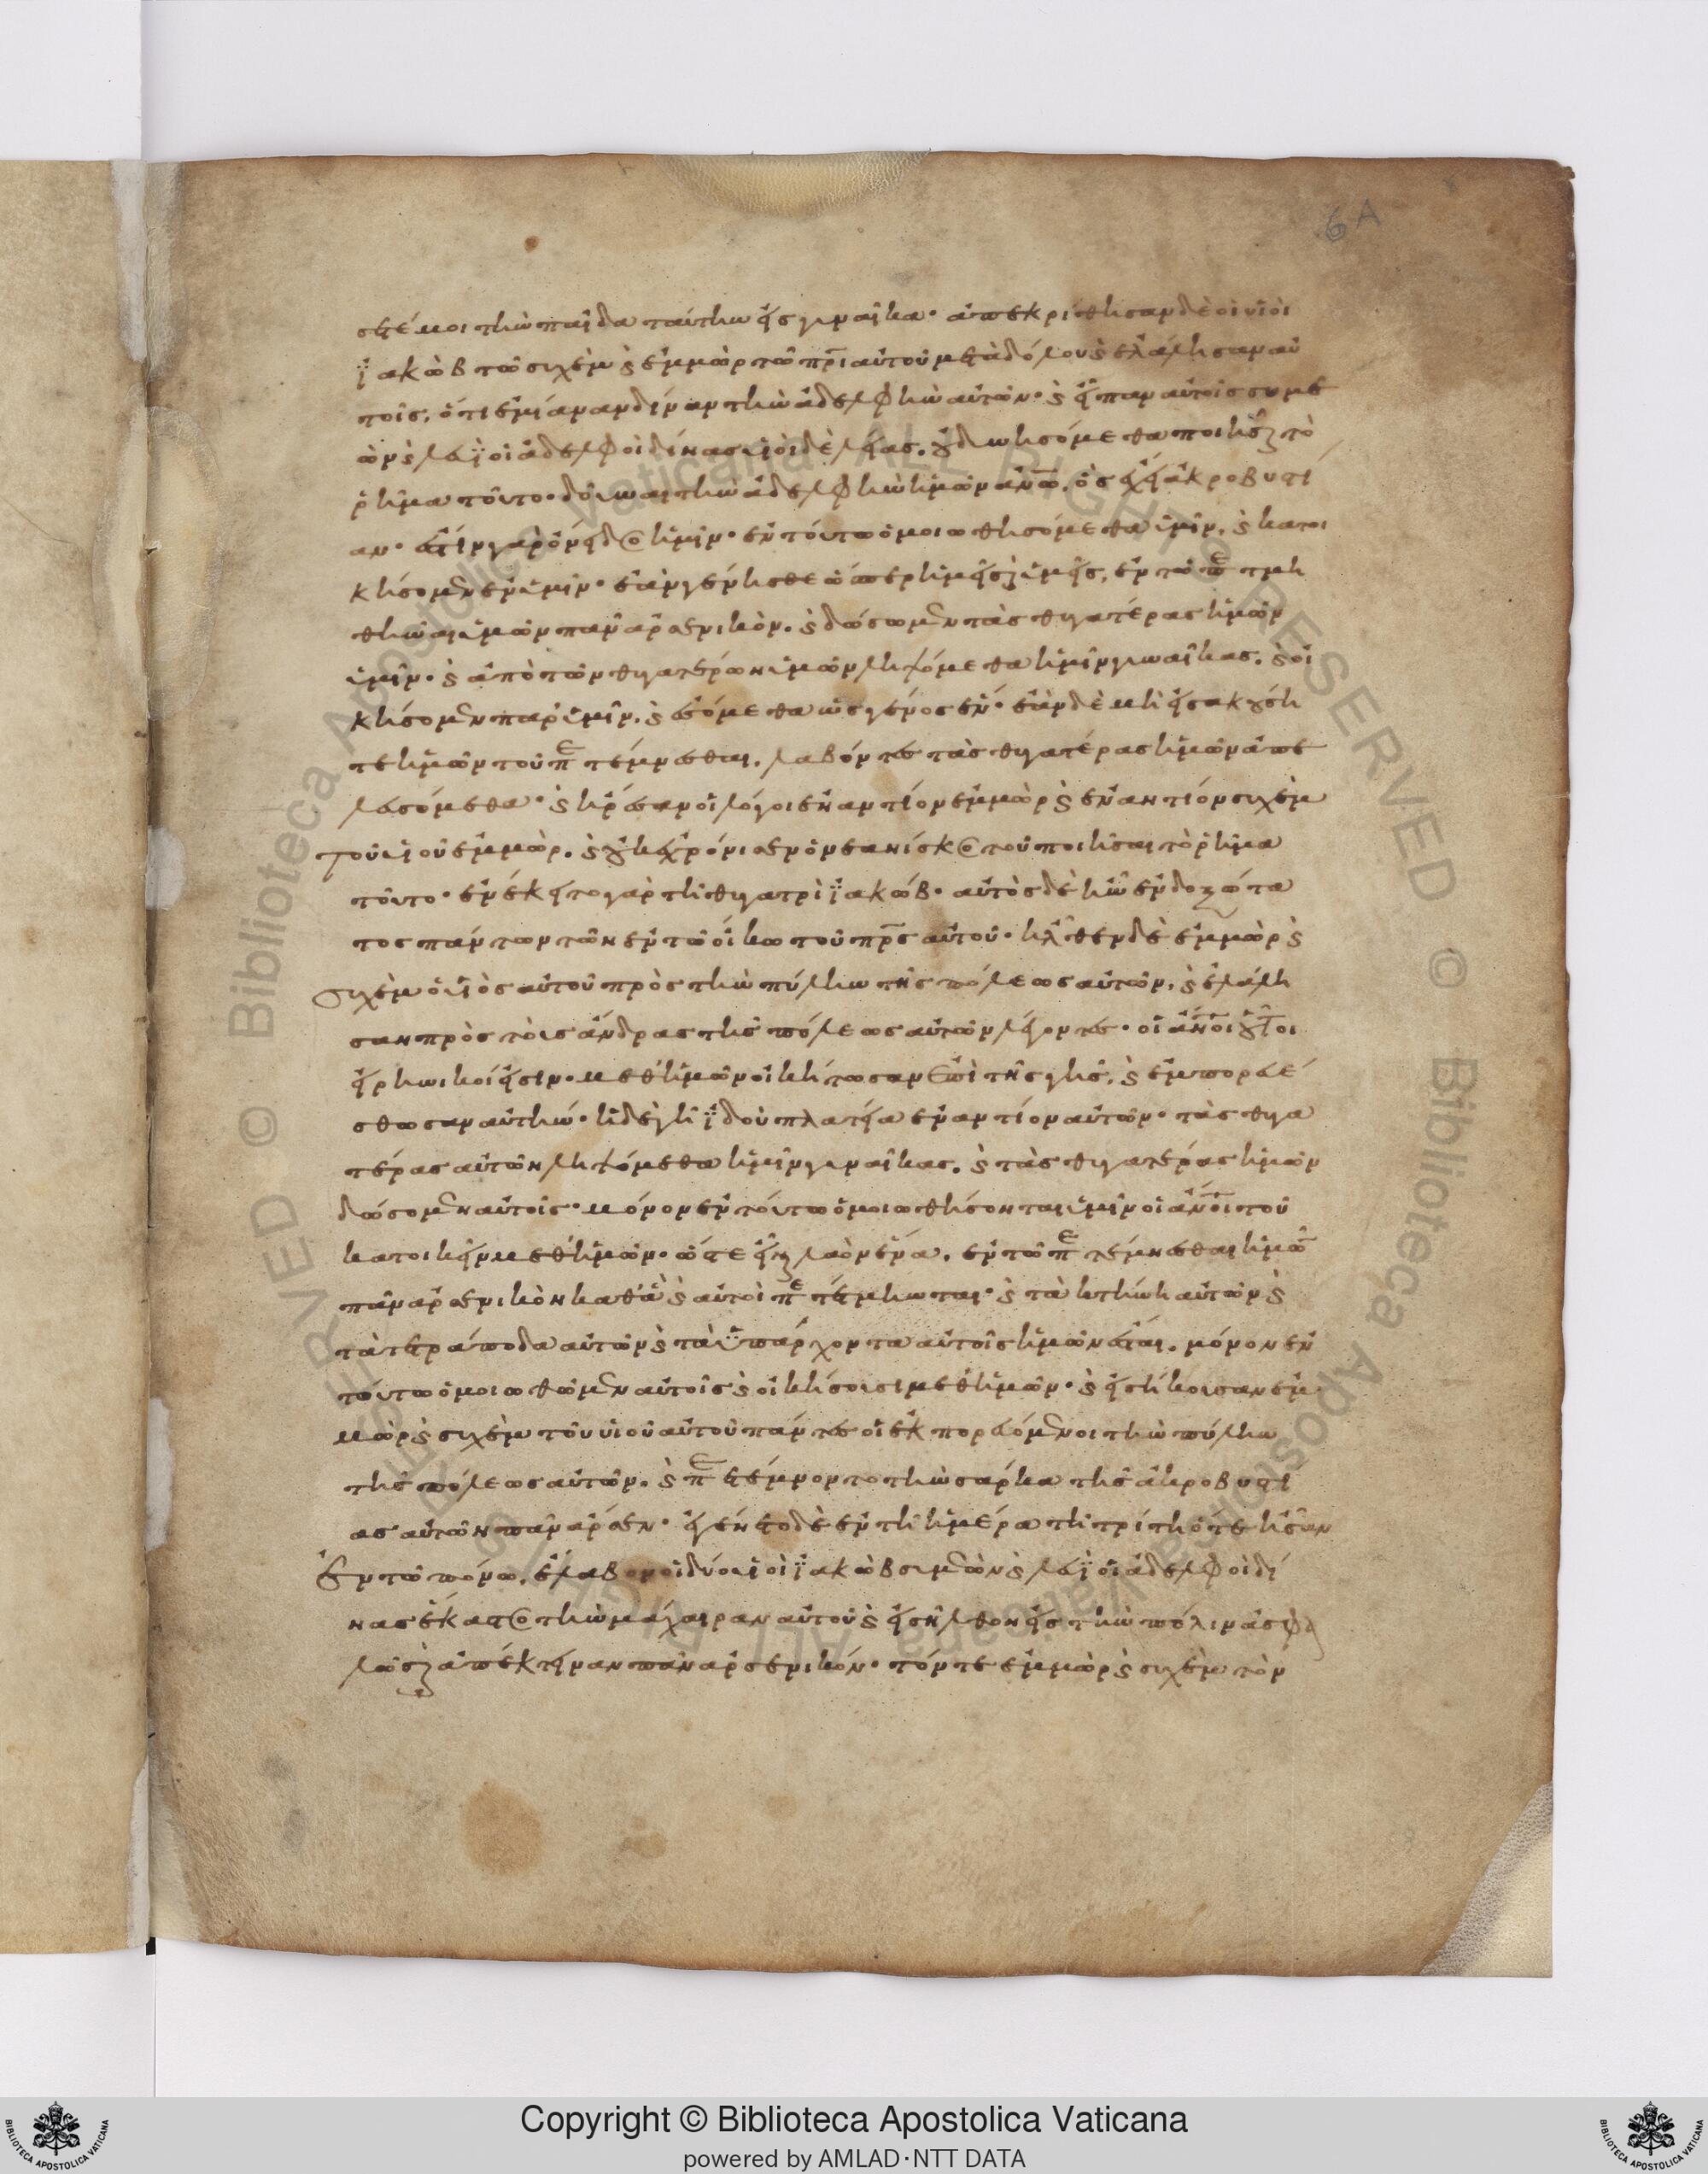 6A
στέ μοι τὴν παῖδα ταύτην εἰς γυναῖκα· ἀπεκρίθησαν δὲ οἱ υἱοὶ
ϊακὼβ τῶ συχὲμ ϗ ἐμμὼρ τῶ πρι αὐτοῦ μετὰ δόλου ϗ ἐλάλησαν αὐ
τοῖς, ὅτι ἐμίαναν δίναν τὴν ἀδελφὴν αὐτῶν· ϗ εἶπαν αὐτοῖς συμε
ὼν ϗ λευϊ οἱ ἀδελφοὶ δίνας υἱοὶ δὲ λείας. οὐ δυνησόμεθα ποιῆσαι τὸ
ῥῆμα τοῦτο· δοῦναι τὴν ἀδελφὴν ἡμῶν ἀνω, ὃς ἔχει ἀκροβυστί
αν· ἔστιν γὰρ ὄνειδος ἡμῖν· ἐν τούτω ὁμοιωθησόμεθα ὑμῖν, ϗ κατοι
κήσομεν ἐν ὑμῖν· ἐὰν γένησθε ὥσπερ ἡμεῖς ϗ ὑμεῖς, ἐν τῶ περιτμη
θῆναι ὑμῶν πᾶν ἀρσενικὸν. ϗ δώσωμεν τὰς θυγατέρας ἡμῶν
ὑμῖν· ϗ ἀπὸ τῶν θυγατέρων ὑμῶν ληψόμεθα ἡμῖν γυναῖκας. ϗ οἰ
κήσομεν παρ ὑμῖν, ϗ ἐσόμεθα ὡς γένος ἕν· ἐὰν δὲ μὴ εἰσακούση
τε ἡμῶν τοῦ περιτέμνεσθαι, λαβόντες τὰς θυγατέρας ἡμῶν ἀπε
λευσόμεθα· ϗ ἤρεσαν οἱ λόγοι ἐναντίον ἐμμὼρ ϗ ἐναντίον συχὲμ
τοῦ υἱοῦ ἐμμὼρ. ϗ οὐκ ἐχρόνισεν ὁ νεανίσκος τοῦ ποιῆσαι τὸ ῥῆμα
τοῦτο· ἐνέκειτο γὰρ τῆ θυγατρὶ ϊακώβ· αὐτὸς δὲ ἦν ἐνδοξότα
τος πάντων τῶν ἐν τῶ οἴκω τοῦ πρς αὐτοῦ· ἦλθεν δὲ ἐμμὼρ ϗ
συχὲμ ὁ υἱὸς αὐτοῦ πρὸς τὴν πύλην τῆς πόλεως αὐτῶν, ϗ ἐλάλη
σαν πρὸς τοὺς ἄνδρας τῆς πόλεως αὐτῶν λέγοντες· οἱ ἄνοι οὗτοι
εἰρηνικοί εἰσιν· μεθ ἡμῶν οἰκήτωσαν ἐπὶ τῆς γῆς, ϗ ἐμπορευέ
σθωσαν αὐτήν· ἡ δὲ γῆ ϊδοὺ πλατεῖα ἐναντίον αὐτῶν· τὰς θυγα
τέρας αὐτῶν ληψόμεθα ἡμῖν γυναῖκας. ϗ τὰς θυγατέρας ἡμῶν
δώσομεν αὐτοῖς· μόνον ἐν τούτω ὁμοιωθήσονται ὑμῖν οἱ ἄνοι τοῦ
κατοικεῖν μεθ ἡμῶν· ὥστε εἶναι λαὸν ἕνα, ἐν τῶ περιτέμνεσθαι ἡμῶν
πᾶν ἀρσενικὸν καθὰ ϗ αὐτοὶ περιτέτμηνται· ϗ τὰ κτήνη αὐτῶν ϗ
τὰ τετράποδα αὐτῶν ϗ τὰ ϋπάρχοντα αὐτοῖς ἡμῶν ἔσται. μόνον ἐν
τούτω ὁμοιωθῶμεν αὐτοῖς ϗ οἰκήσουσι μεθ ἡμῶν· ϗ εἰσήκουσαν ἐμ
μὼρ ϗ συχὲμ τοῦ υἱοῦ αὐτοῦ πάντες οἱ ἐκπορευόμενοι τὴν πύλην
τῆς πόλεως αὐτῶν. ϗ περιετέμνοντο τὴν σάρκα τῆς ἀκροβυστί
ας αὐτῶν πᾶν ἄρσεν· ἐγένετο δὲ ἐν τῆ ἡμέρα τῆ τρίτη ὅτε ἦσαν
ἐν τῶ πόνω, ἔλαβον οἱ δύο υἱοὶ ϊακὼβ συμεὼν ϗ λευϊ οἱ ἀδελφοὶ δί
νας ἕκαστος τὴν μάχαιραν αὐτοῦ ϗ εἰσῆλθον εἰς τὴν πόλιν ἀσφα
λῶς ϗ ἀπέκτειναν πᾶν ἀρσενικόν· τόν τε ἐμμὼρ ϗ συχὲμ τὸν
Copyright © Biblioteca Apostolica Vaticana
powered by AMLAD·NTT DATA